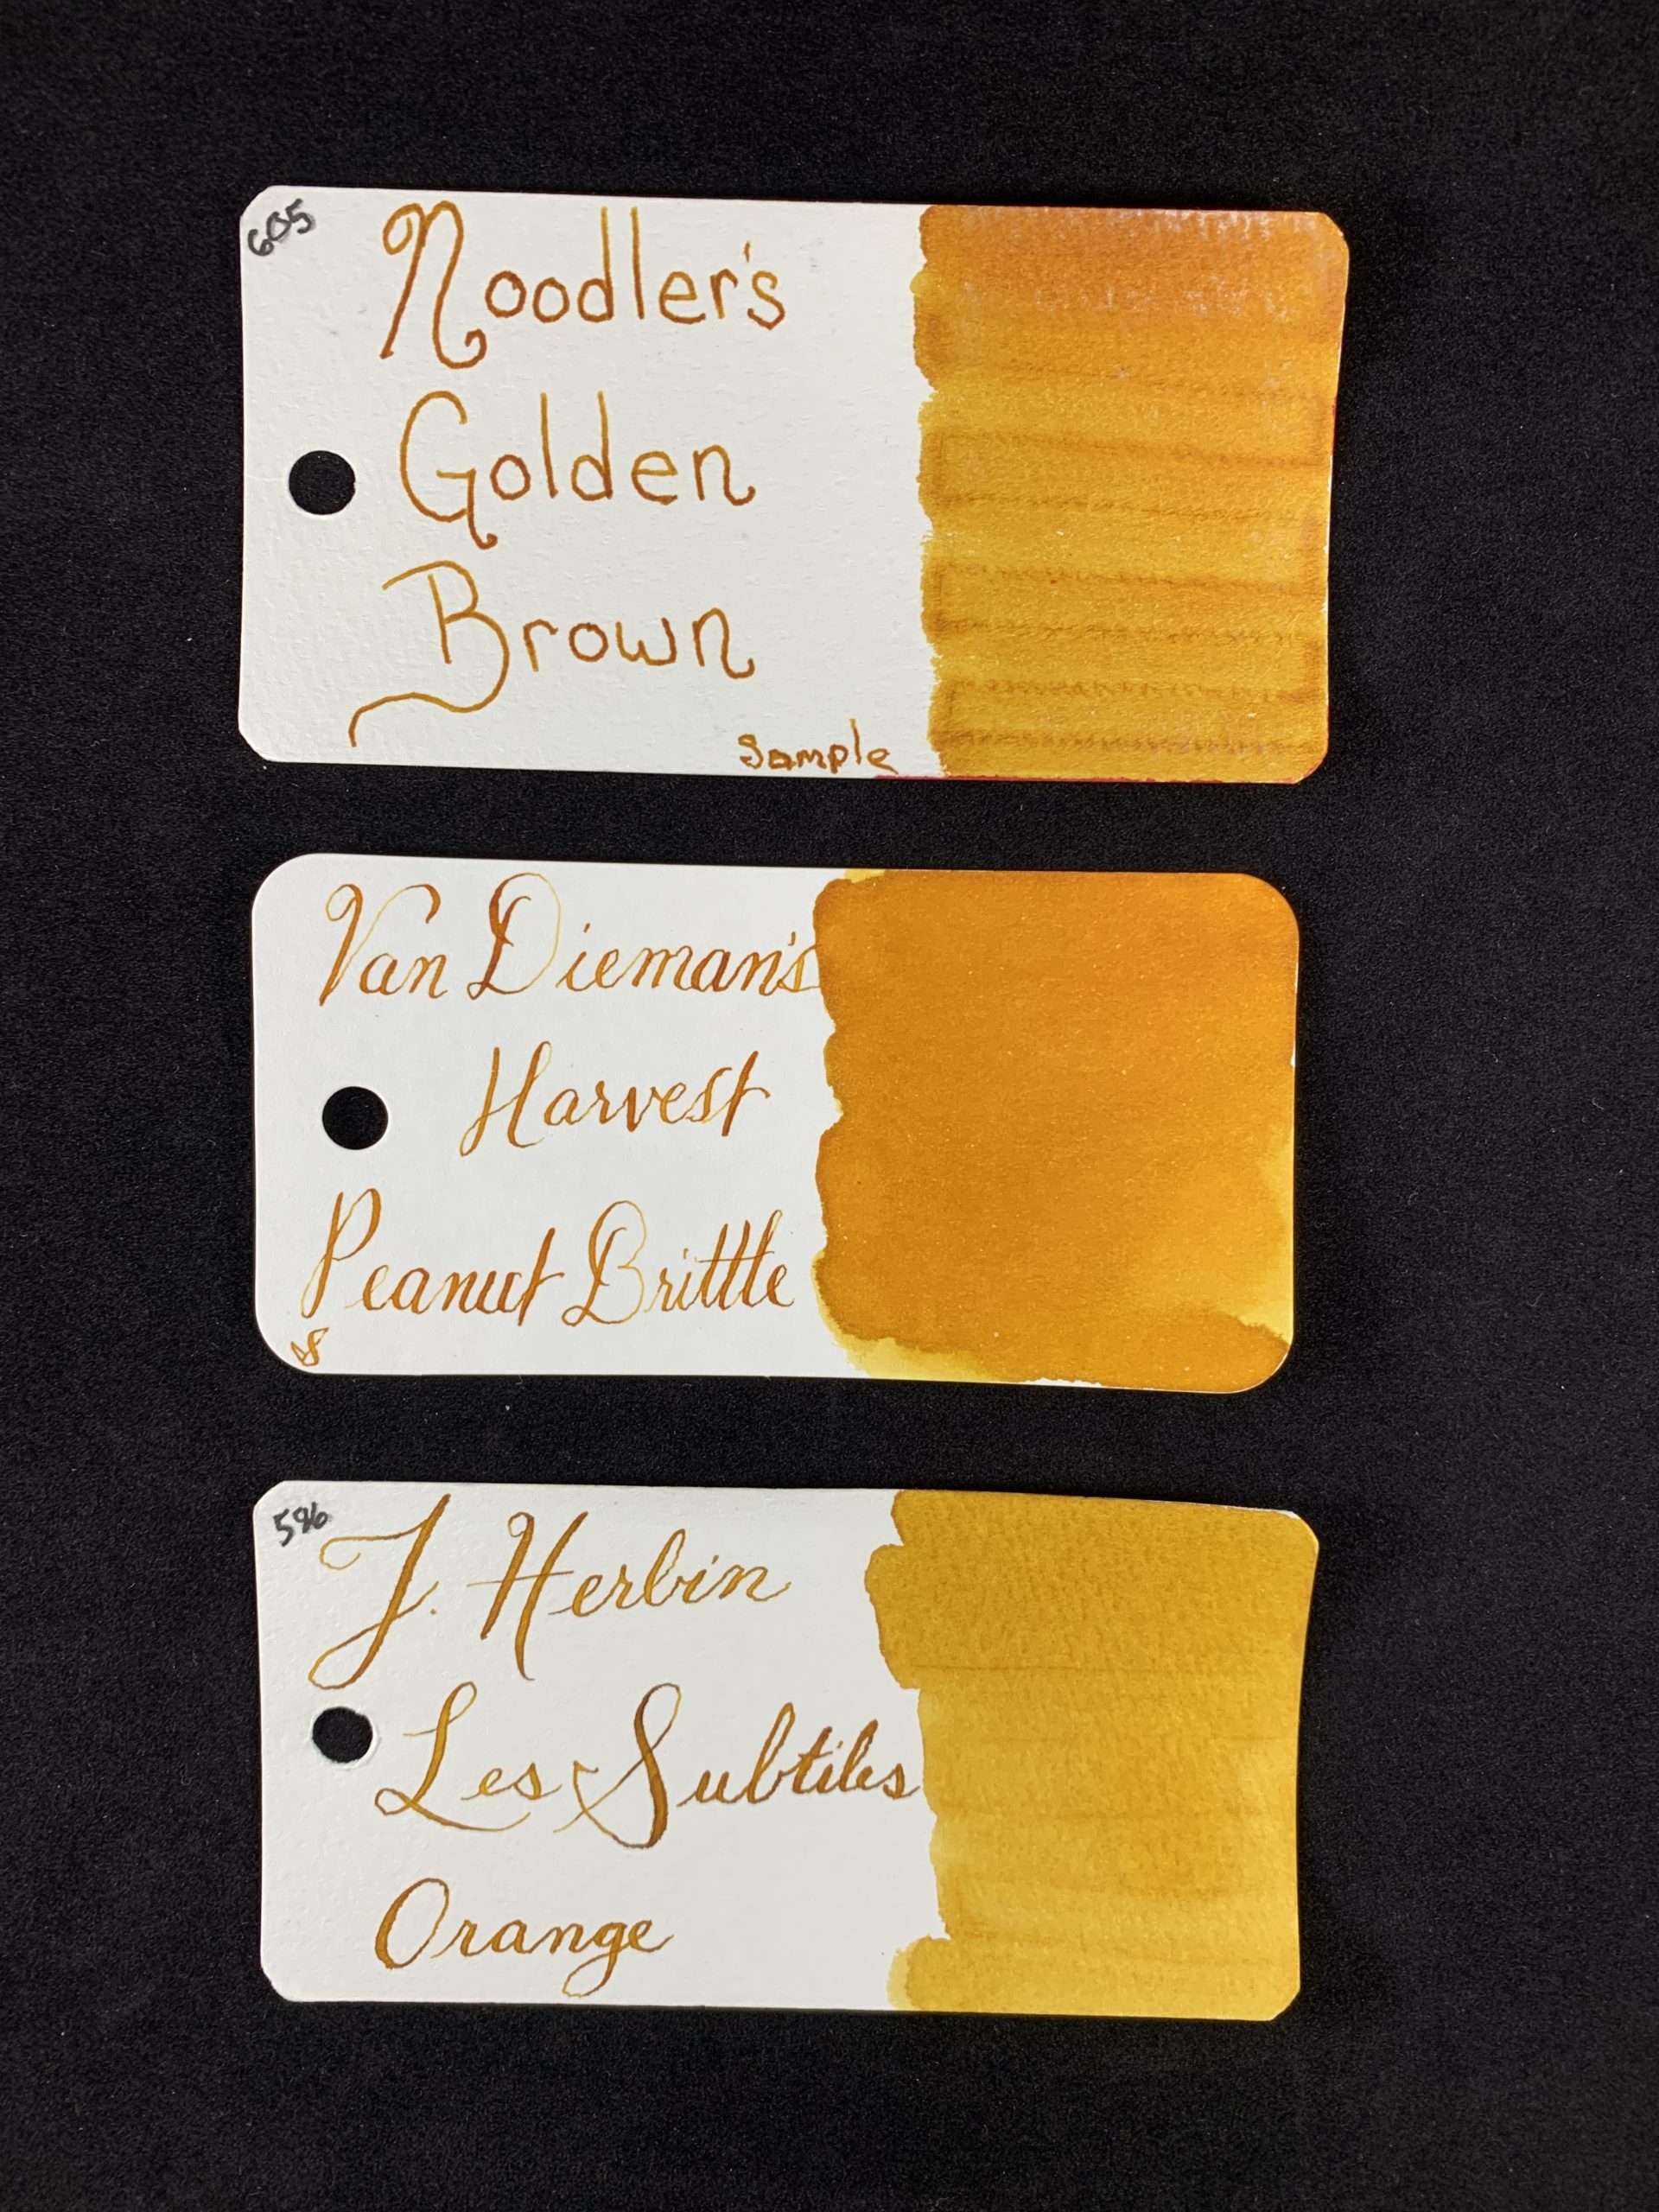 605
Noodler's
Golden
Brown
Sample
Van Dieman's
Harvest
Peanut Brittle
S
596
J. Herbin
Les Subtiles
Orange